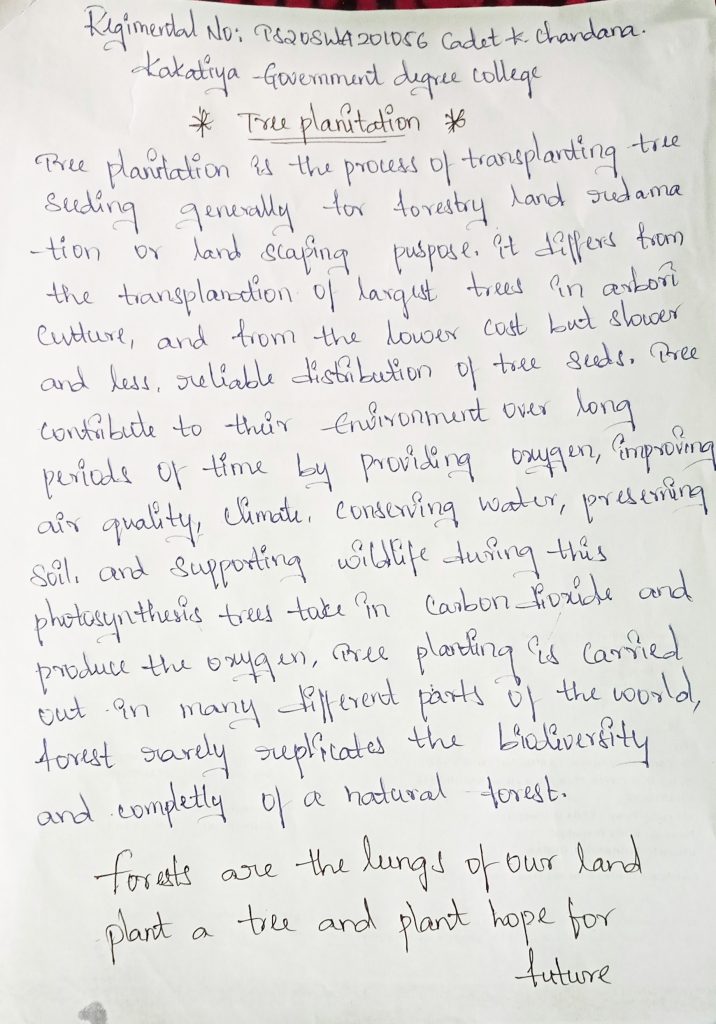 Regimental No: TS20SWA201056 Cadet K. Chandana.
Kakatiya Government degree college
* Tree planitation *
Tree planitation is the process of transplanting tree
Seeding generally for forestry land reclama
-tion or land scaping puspose. it differs from
the transplanation of largest trees in arbori
Cutture, and from the lower cost but slower
and less, reliable distribution of tree seeds. Tree
contribute to their Environment over long
periods of time by providing oxygen, improving
air quality, climate, conserving water, preserving
Soil, and supporting wildlife during this
photosynthesis trees take in Carbon dioxide and
produce the oxygen, Tree planting is carried
out in many different parts of the world,
forest rarely replicates the biodiversity
and completly of a natural forest.
forests are the lungs of our land
plant a tree and plant hope for
future